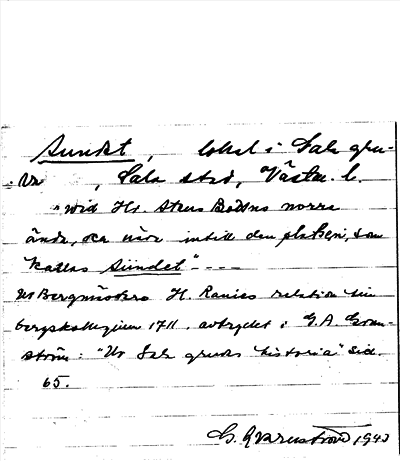 Sundet, lokal i Sala gru-
va, Sala stad, Västm. l.
"wid Hr. Stens Bottns norra
ända, och när intill den platsen, som
kallas Sündet" ----
Ur Bergmästare H. relation till
bergskollegium 1711. avtryckt i G.A. Gran-
ström: "Ur Sala gruvas historia" sid.
65.
G. 1943